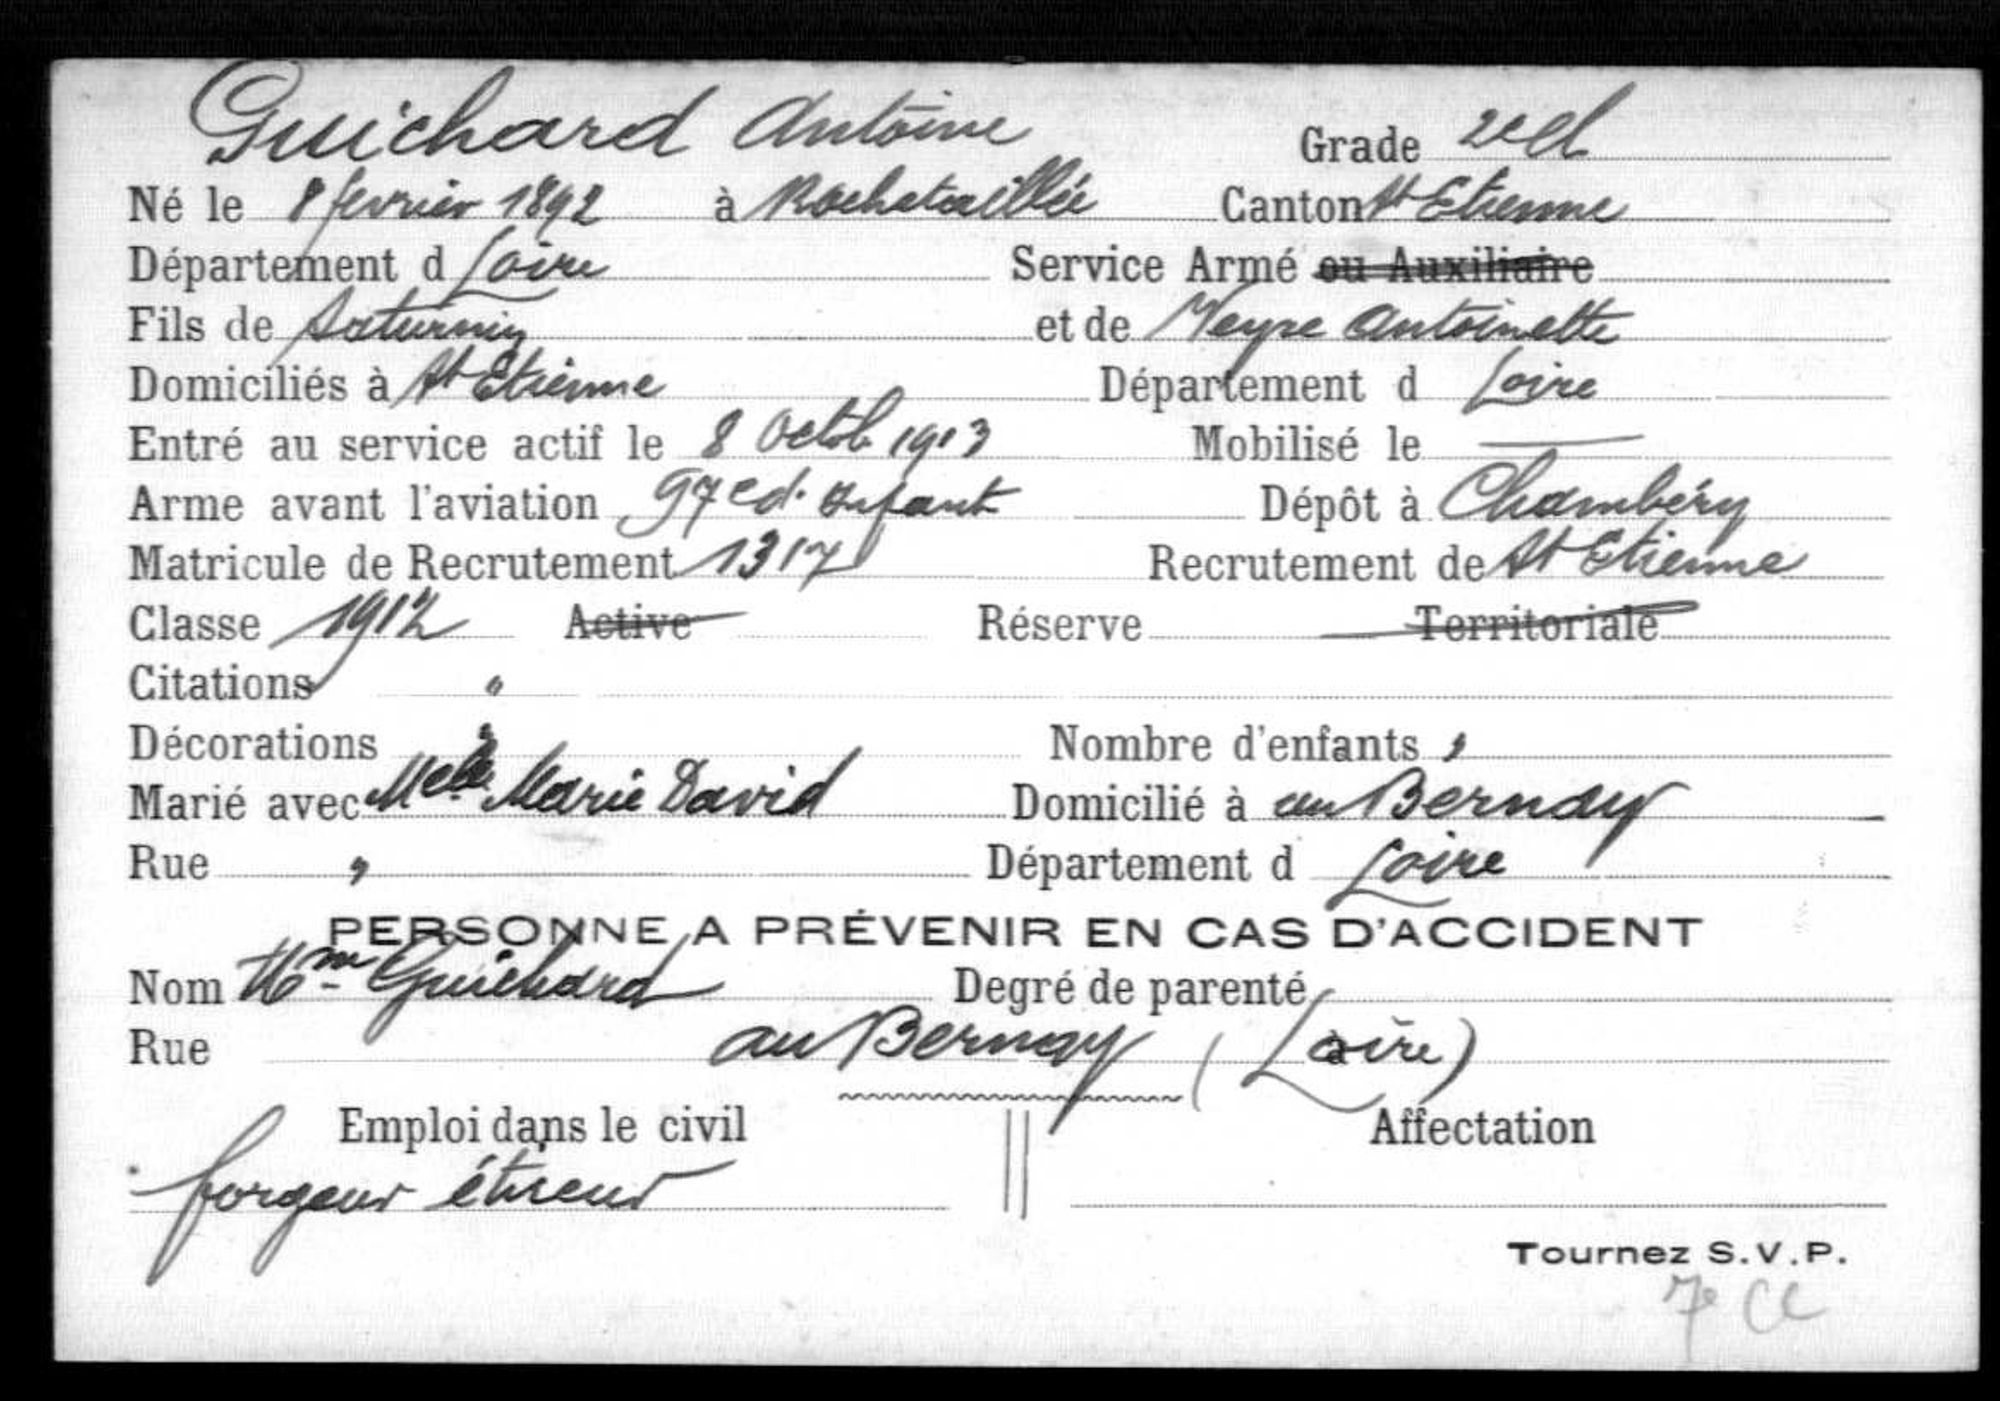 Guichard Antoine Grade 2e cl
Né le 8 fevrier 1892 à Rochetaillée Canton St Etienne
Département d Loire Service Armé ou Auxiliaire
Fils de Saturnin et de Meyre Antoinette
Domiciliés à St Etienne Département d Loire
Entré au service actif le 8 Octob 1913 Mobilisé le —
Arme avant l'aviation 97e d. Infant Dépôt à Chambéry
Matricule de Recrutement 1317 Recrutement de St Etienne
Classe 1912 Active Réserve Territoriale
Citations "
Décorations " Nombre d'enfants "
Marié avec Melle Marie David Domicilié à au Bernay
Rue " Département d Loire
PERSONNE A PRÉVENIR EN CAS D'ACCIDENT
Nom Mme Guichard Degré de parenté
Rue au Bernay à (Loire)
Emploi dans le civil Affectation
forgeur étireur
Tournez S.V.P.
7e